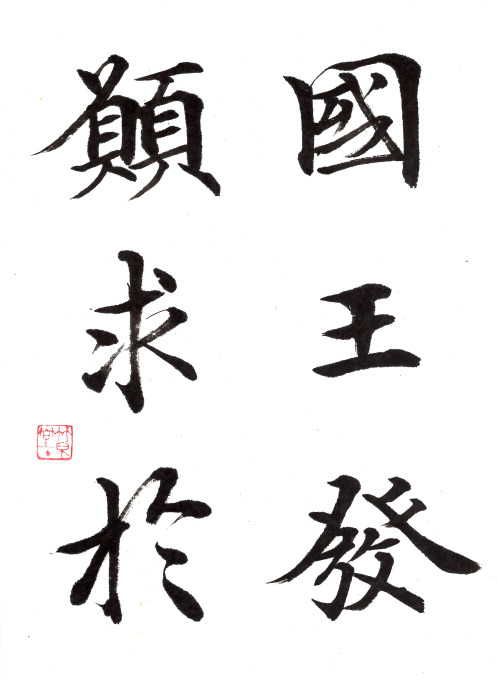 國王發
願求於